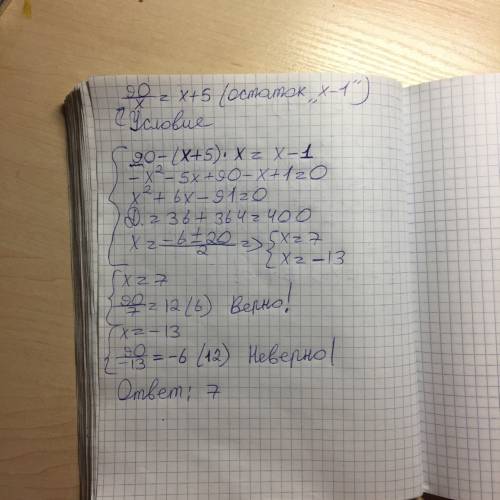 90/x = x+5 (остаток „x-1")
Условие
90-(x+5)·x = x-1
-x²-5x+90-x+1=0
x²+6x-91=0
D = 36+364=400
x = (-6±20)/2 => { x=7
x=-13
x=7
90/7 = 12 (6) Верно!
x=-13
90/-13 = -6 (12) Неверно!
Ответ: 7